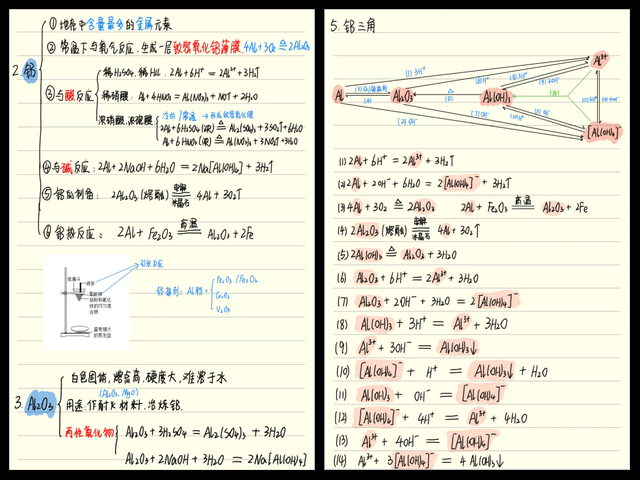 2. 铝
① 地壳中含量最多的金属元素
② 常温下与氧气反应,生成一层致密氧化铝薄膜 4Al+3O₂ ≜ 2Al₂O₃
③ 与酸反应
稀H₂SO₄、稀HCl: 2Al+6H⁺=2Al³⁺+3H₂↑
稀硝酸: Al+4HNO₃=Al(NO₃)₃+NO↑+2H₂O
浓硝酸、浓硫酸
冷的/常温 → 形成致密氧化膜
2Al+6H₂SO₄(浓)≜Al₂(SO₄)₃+3SO₂↑+6H₂O
Al+6HNO₃(浓)≜Al(NO₃)₃+3NO₂↑+3H₂O
④ 与碱反应: 2Al+2NaOH+6H₂O=2Na[Al(OH)₄]+3H₂↑
⑤ 铝的制备: 2Al₂O₃(熔融) 电解 冰晶石 4Al+3O₂↑
⑥ 铝热反应: 2Al+Fe₂O₃ 高温 Al₂O₃+2Fe
引发反应
镁条
氯酸钾
铝粉和氧化
铁的均匀混
合物
盛有细沙
的蒸发皿
铝热剂: Al粉+
Fe₂O₃/Fe₃O₄
V₂O₅
3. Al₂O₃
白色固体,熔点高,硬度大,难溶于水
(Al₂O₃、MgO)
用途:作耐火材料、冶炼铝.
两性氧化物
Al₂O₃+3H₂SO₄=Al₂(SO₄)₃+3H₂O
Al₂O₃+2NaOH+3H₂O=2Na[Al(OH)₄]
5. 铝三角
Al³⁺
Al
Al₂O₃
Al(OH)₃
[Al(OH)₄]⁻
(1) 3H⁺
(3) O₂/Fe₂O₃
(4)
(2) OH⁻
(5)
(6) H⁺
(7) OH⁻
(8) 3H⁺
(14)
(1) 2Al+6H⁺=2Al³⁺+3H₂↑
(2) 2Al+2OH⁻+6H₂O=2[Al(OH)₄]⁻+3H₂↑
(3) 4Al+3O₂ ≜ 2Al₂O₃ 2Al+Fe₂O₃ 高温 Al₂O₃+2Fe
(4) 2Al₂O₃(熔融) 电解 冰晶石 4Al+3O₂↑
(5) 2Al(OH)₃ ≜ Al₂O₃+3H₂O
(6) Al₂O₃+6H⁺=2Al³⁺+3H₂O
(7) Al₂O₃+2OH⁻+3H₂O=2[Al(OH)₄]⁻
(8) Al(OH)₃+3H⁺=Al³⁺+3H₂O
(9) Al³⁺+3OH⁻=Al(OH)₃↓
(10) [Al(OH)₄]⁻+H⁺=Al(OH)₃↓+H₂O
(11) Al(OH)₃+OH⁻=[Al(OH)₄]⁻
(12) [Al(OH)₄]⁻+4H⁺=Al³⁺+4H₂O
(13) Al³⁺+4OH⁻=[Al(OH)₄]⁻
(14) Al³⁺+3[Al(OH)₄]⁻=4Al(OH)₃↓